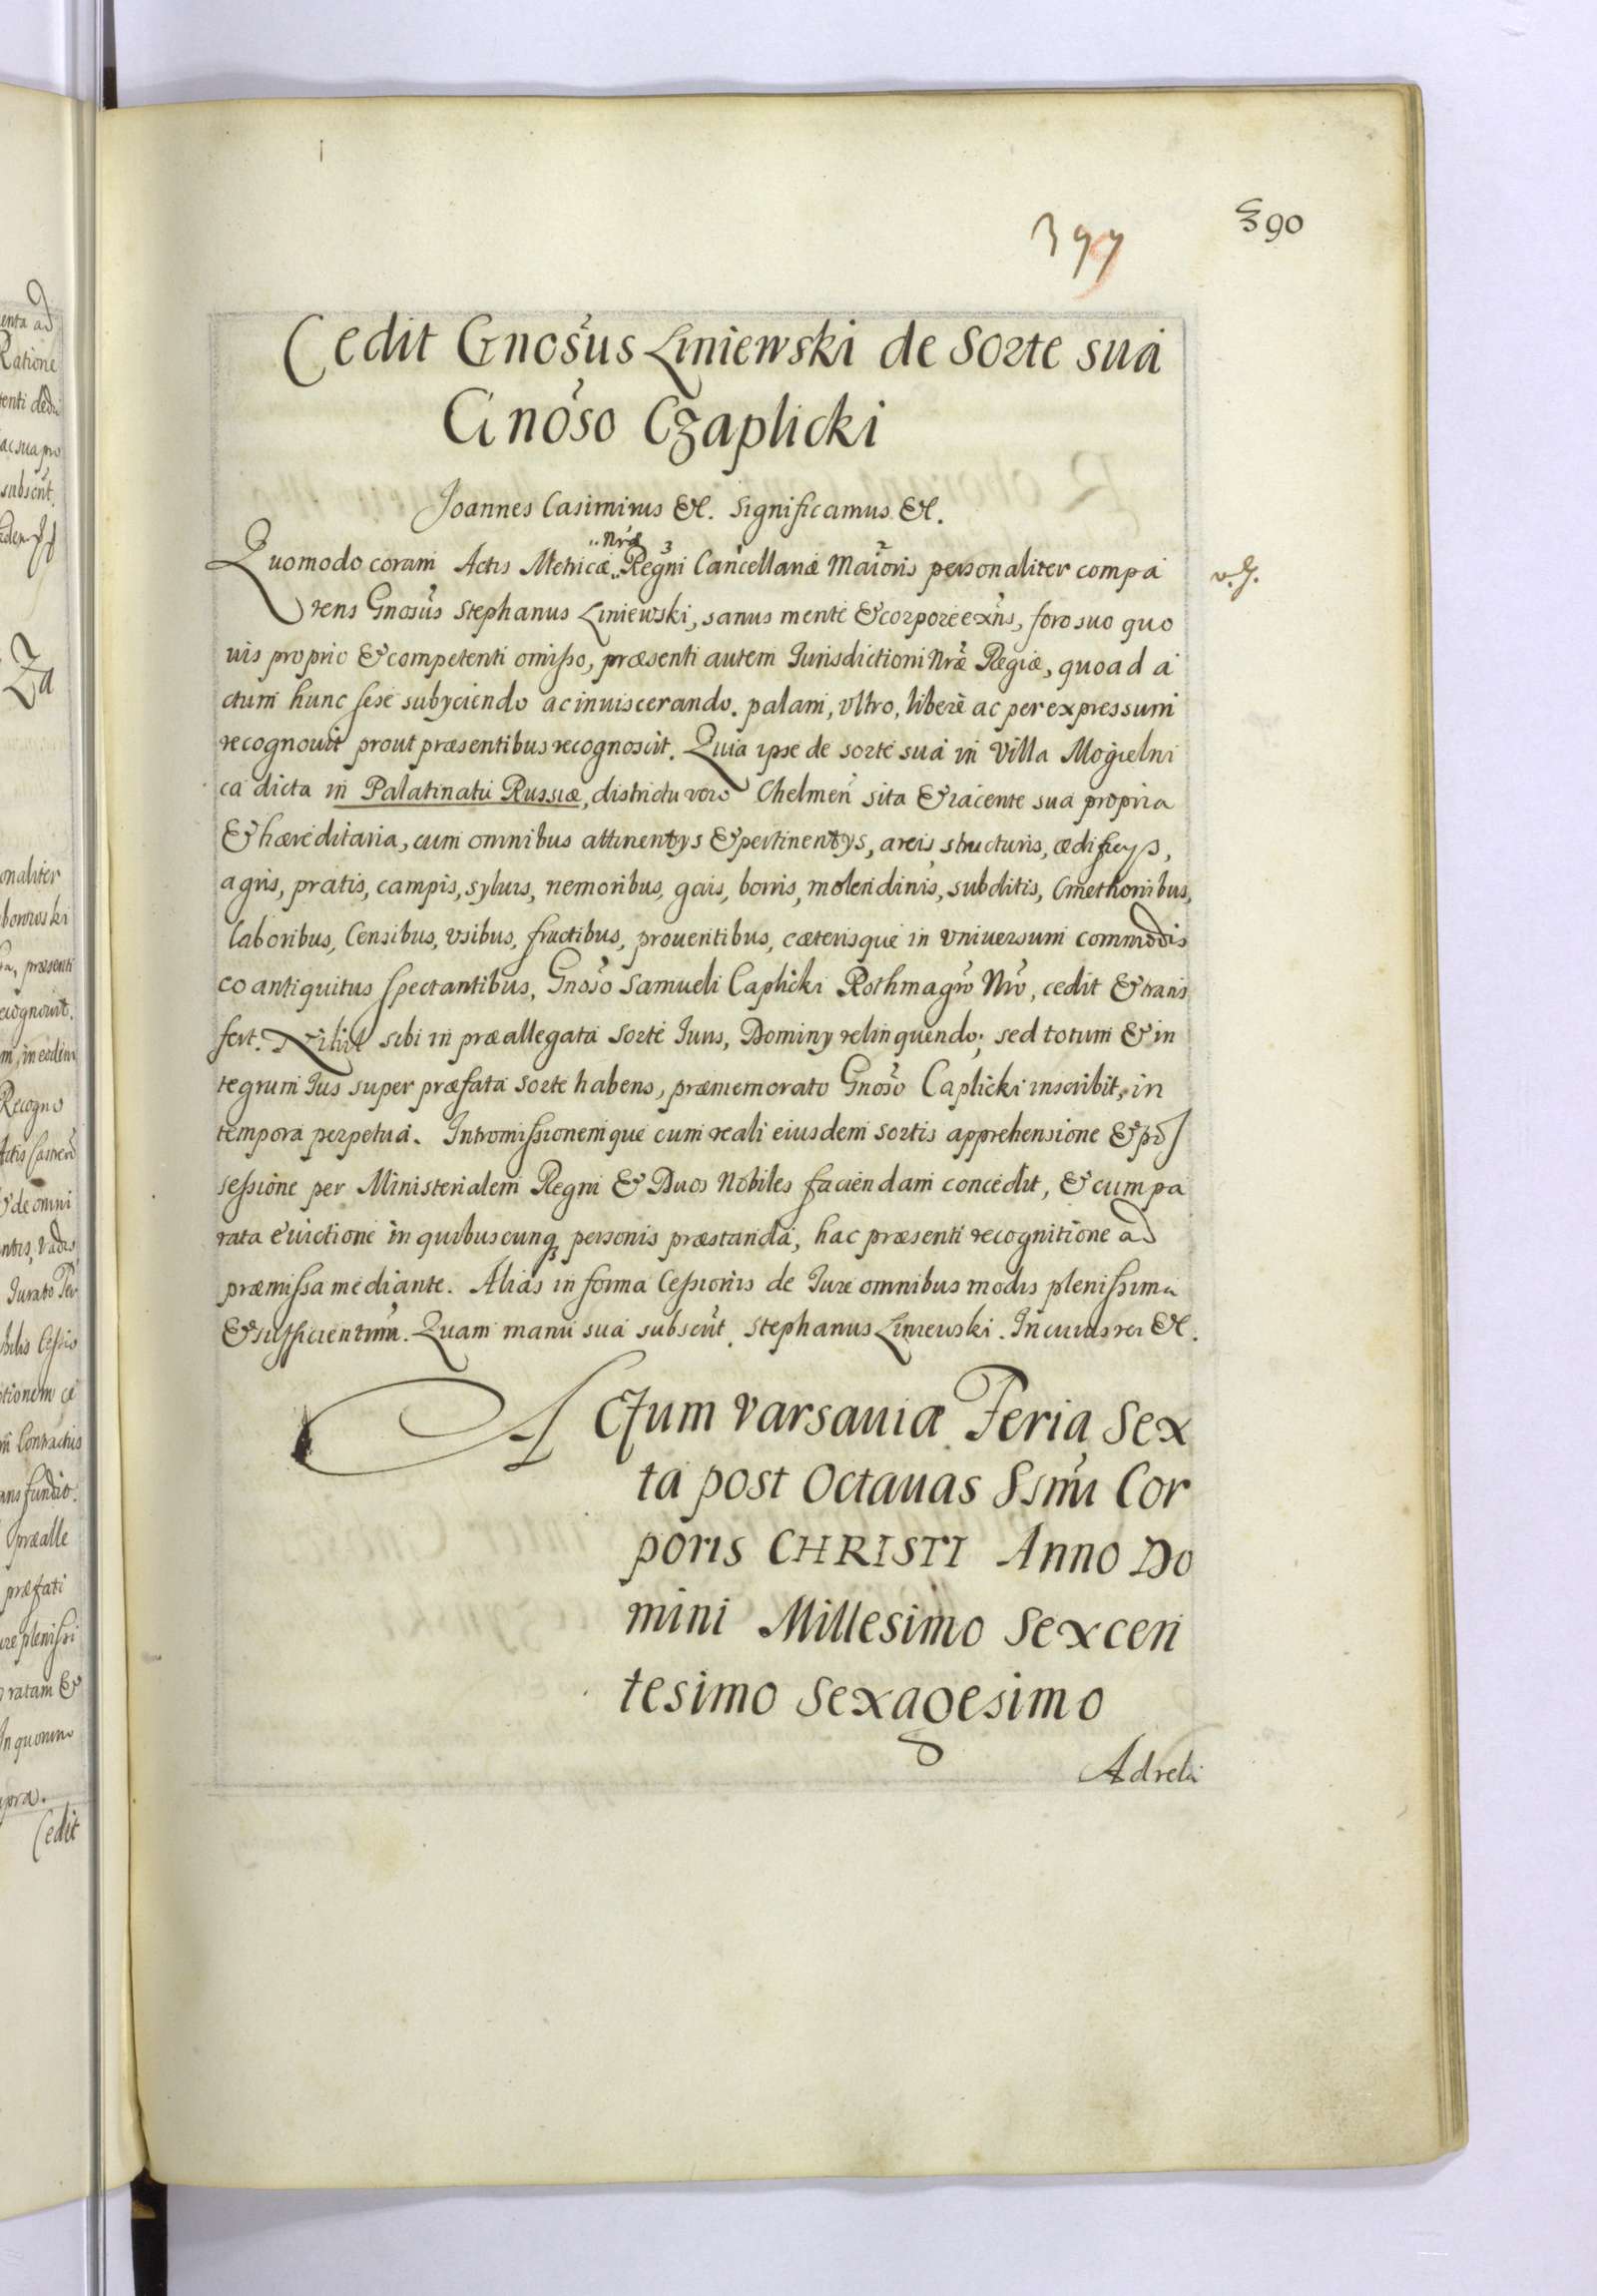 390
397
Cedit Gnosus Liniewski de Sorte sua
Gnoso Czaplicki
Joannes Casimirus &c. Significamus &c.
Nræ 3 2
Quomodo coram Actis Metricæ Regni Cancellariæ Maioris personaliter compa
rens Gnosus Stephanus Liniewski, sanus mente & corpore exns, foro suo quo
uis proprio & competenti omisso, præsenti autem Jurisdictioni Nræ Regiæ, quoad a
ctum hunc sese subyciendo ac inuiscerando. palam, vltro, libere ac per expressum
recognouit prout præsentibus recognoscit. Quia ipse de sorte sua in Villa Mogielni
ca dicta in Palatinatu Russiæ, districtu vero Chelmen sita & iacente sua propria
& hæreditaria, cum omnibus attinentys & pertinentys, areis structuris, ædificys,
agris, pratis, campis, syluis, nemoribus, gais, borris, molendinis, subditis, Cmethonibus,
laboribus, Censibus, vsibus, fructibus, prouentibus, cæterisque in vniuersum commodis
eo antiquitus spectantibus, Gnoso Samueli Caplicki Rothmagro Nro, cedit & trans
fert. Nihil sibi in præallegata sorte Juris, Dominy relinquendo; sed totum & in
tegrum Jus super præfata sorte habens, præmemorato Gnoso Caplicki inscribit, in
tempora perpetua. Intromissionemque cum reali eiusdem sortis apprehensione & pos
sessione per Ministerialem Regni & Duos Nobiles faciendam concedit, & cum pa
rata euictione in quibuscunq personis præstanda, hac præsenti recognitione ad
præmissa mediante. Alias in forma Cessionis de Jure omnibus modis plenissima
& sufficientmi. Quam manu sua subscrit. Stephanus Liniewski. In cuius rei &c.
Actum Varsauiæ Feria Sex
ta post Octauas SSmi Cor
poris CHRISTI Anno Do
mini Millesimo Sexcen
tesimo Sexagesimo